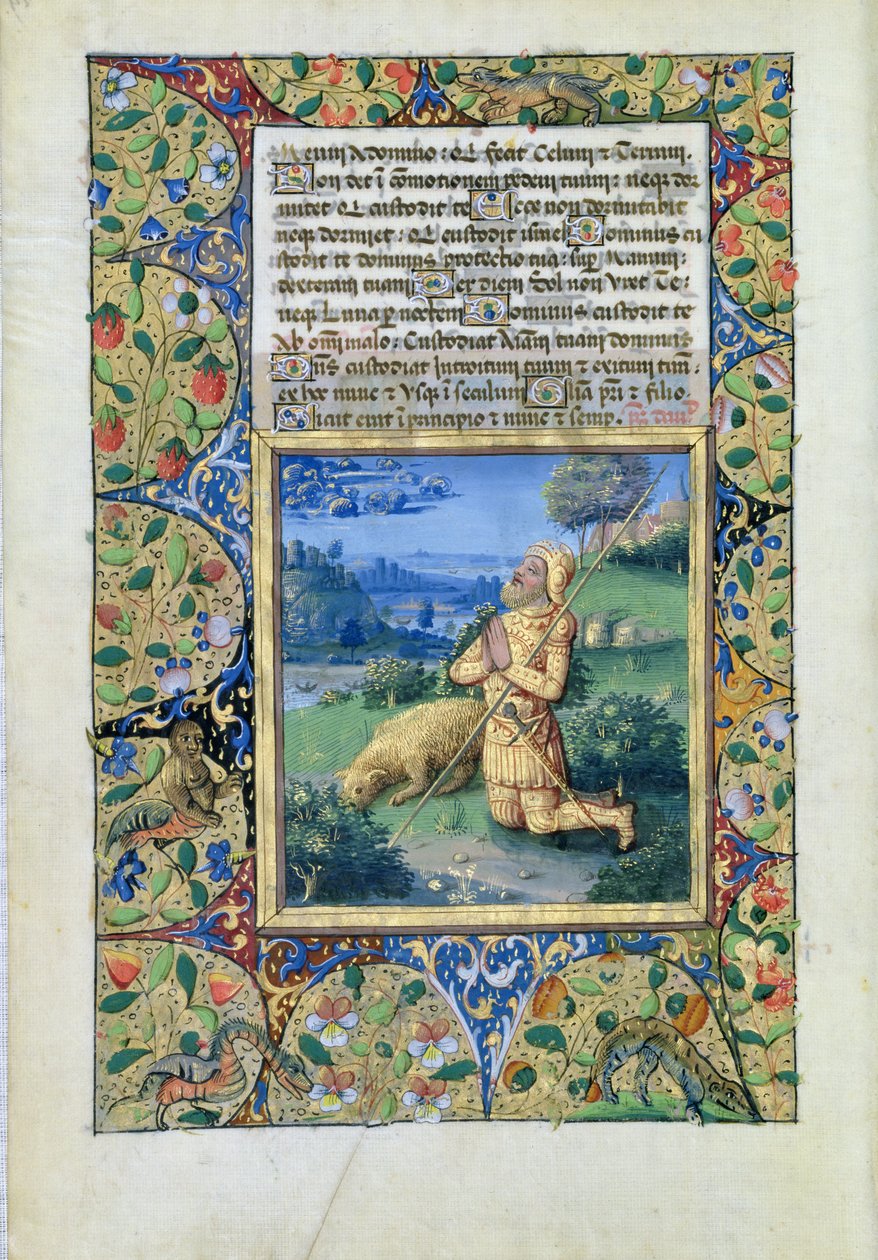 Meum A domino : Q̅ fecit Celum ⁊ Terram.
Non det ī co̅motionem pedem tuum: neq; dor
mitet Q̅ custodit te Ecce non dormitabit
neq; dormiet: Q̅ custodit isrl̅ Dominus cu
stodit te dominus protectio tua: sup̅ Manum:
dexteram tuam Per diem Sol non Vret Te:
neq; Luna p̅ noctem Dominus custodit te
Ab om̅i malo: Custodiat Ai̅am tuam dominus
Dn̅s custodiat Introitum tuum ⁊ exitum tuu̅.
ex hoc nunc ⁊ Vsq; ī seculum Gl̅ia pr̅i ⁊ filio
Sicut erat ī principio ⁊ nunc ⁊ semp̅.